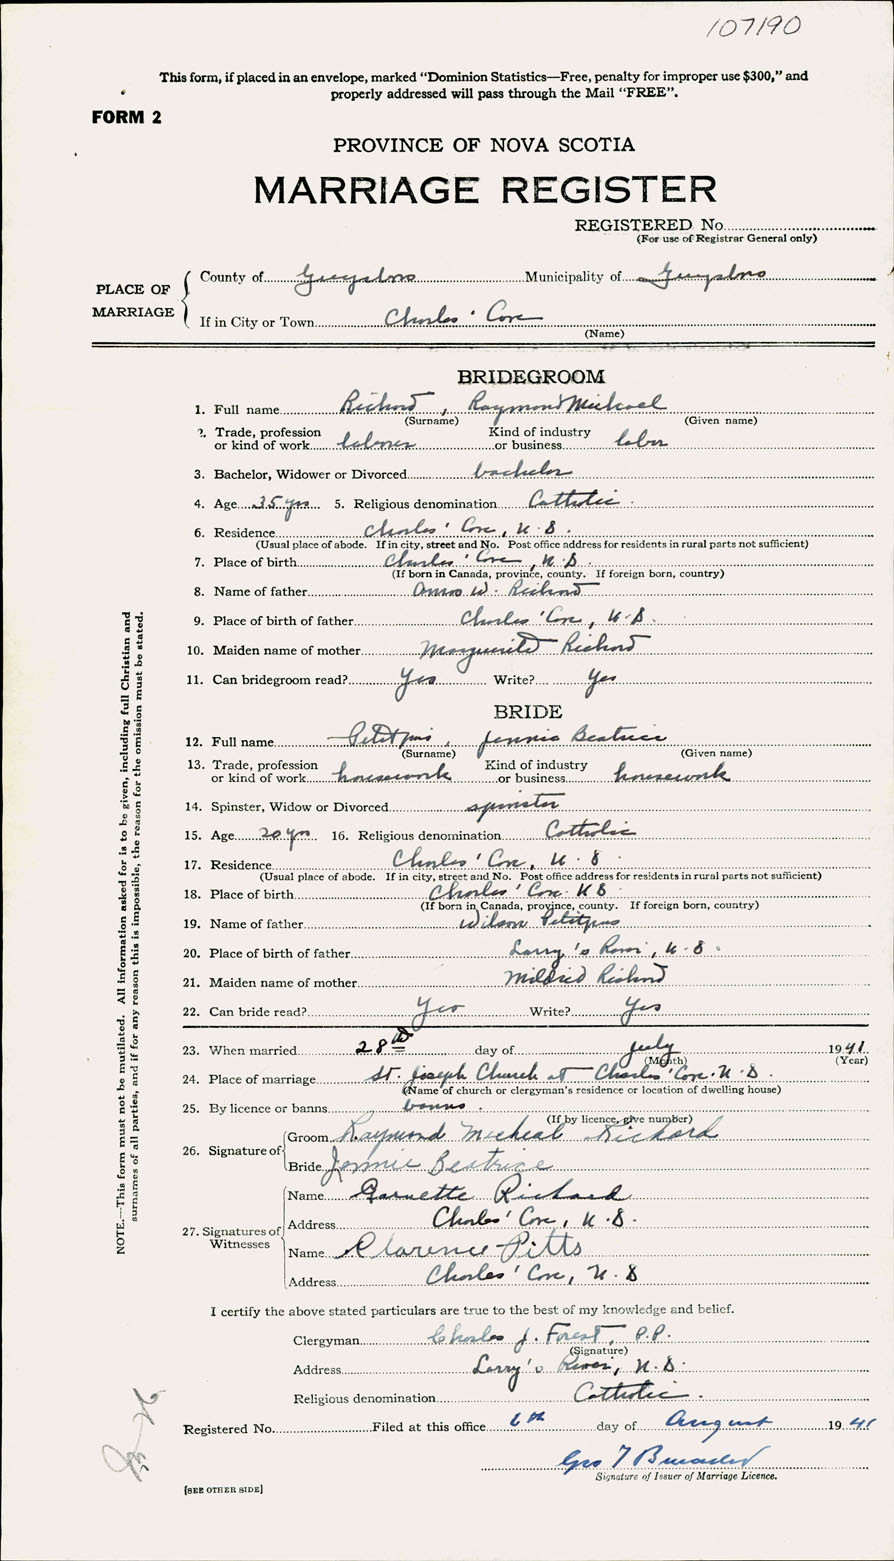 107190
This form, if placed in an envelope, marked “Dominion Statistics—Free, penalty for improper use $300,” and
properly addressed will pass through the Mail “FREE”.
FORM 2
PROVINCE OF NOVA SCOTIA
MARRIAGE REGISTER
REGISTERED No.
(For use of Registrar General only)
PLACE OF MARRIAGE
County of Guysboro Municipality of Guysboro
If in City or Town Charles' Cove
(Name)
BRIDEGROOM
1. Full name Richard, Raymond Michael
(Surname) (Given name)
2. Trade, profession or kind of work laborer Kind of industry or business labor
3. Bachelor, Widower or Divorced bachelor
4. Age 35 yrs 5. Religious denomination Catholic.
6. Residence Charles' Cove, N.S.
(Usual place of abode. If in city, street and No. Post office address for residents in rural parts not sufficient)
7. Place of birth Charles' Cove, N.S.
(If born in Canada, province, county. If foreign born, country)
8. Name of father Amos W. Richard
9. Place of birth of father Charles' Cove, N.S.
10. Maiden name of mother Marguerite Richard
11. Can bridegroom read? Yes Write? Yes
BRIDE
12. Full name Petitpas, Jennie Beatrice
(Surname) (Given name)
13. Trade, profession or kind of work housework Kind of industry or business housework
14. Spinster, Widow or Divorced spinster
15. Age 20 yrs 16. Religious denomination Catholic
17. Residence Charles' Cove, N.S.
(Usual place of abode. If in city, street and No. Post office address for residents in rural parts not sufficient)
18. Place of birth Charles' Cove. N S
(If born in Canada, province, county. If foreign born, country)
19. Name of father Wilson Petitpas
20. Place of birth of father Larry's River, N.S.
21. Maiden name of mother Mildred Richard
22. Can bride read? Yes Write? Yes
23. When married 28th day of July 1941
(Month) (Year)
24. Place of marriage St. Joseph Church at Charles' Cove. N.S.
(Name of church or clergyman's residence or location of dwelling house)
25. By licence or banns banns.
(If by licence, give number)
26. Signature of
Groom Raymond Micheal Richard
Bride Jennie Beatrice
27. Signatures of Witnesses
Name Garnette Richard
Address Charles' Cove, N.S.
Name Clarence Pitts
Address Charles' Cove, N.S
I certify the above stated particulars are true to the best of my knowledge and belief.
Clergyman Charles J. Forest, P.P.
(Signature)
Address Larry's River, N.S.
Religious denomination Catholic.
Registered No. Filed at this office 6th day of August 1941
Geo T
Signature of Issuer of Marriage Licence.
[SEE OTHER SIDE]
NOTE.—This form must not be mutilated. All information asked for is to be given, including full Christian and
surnames of all parties, and if for any reason this is impossible, the reason for the omission must be stated.